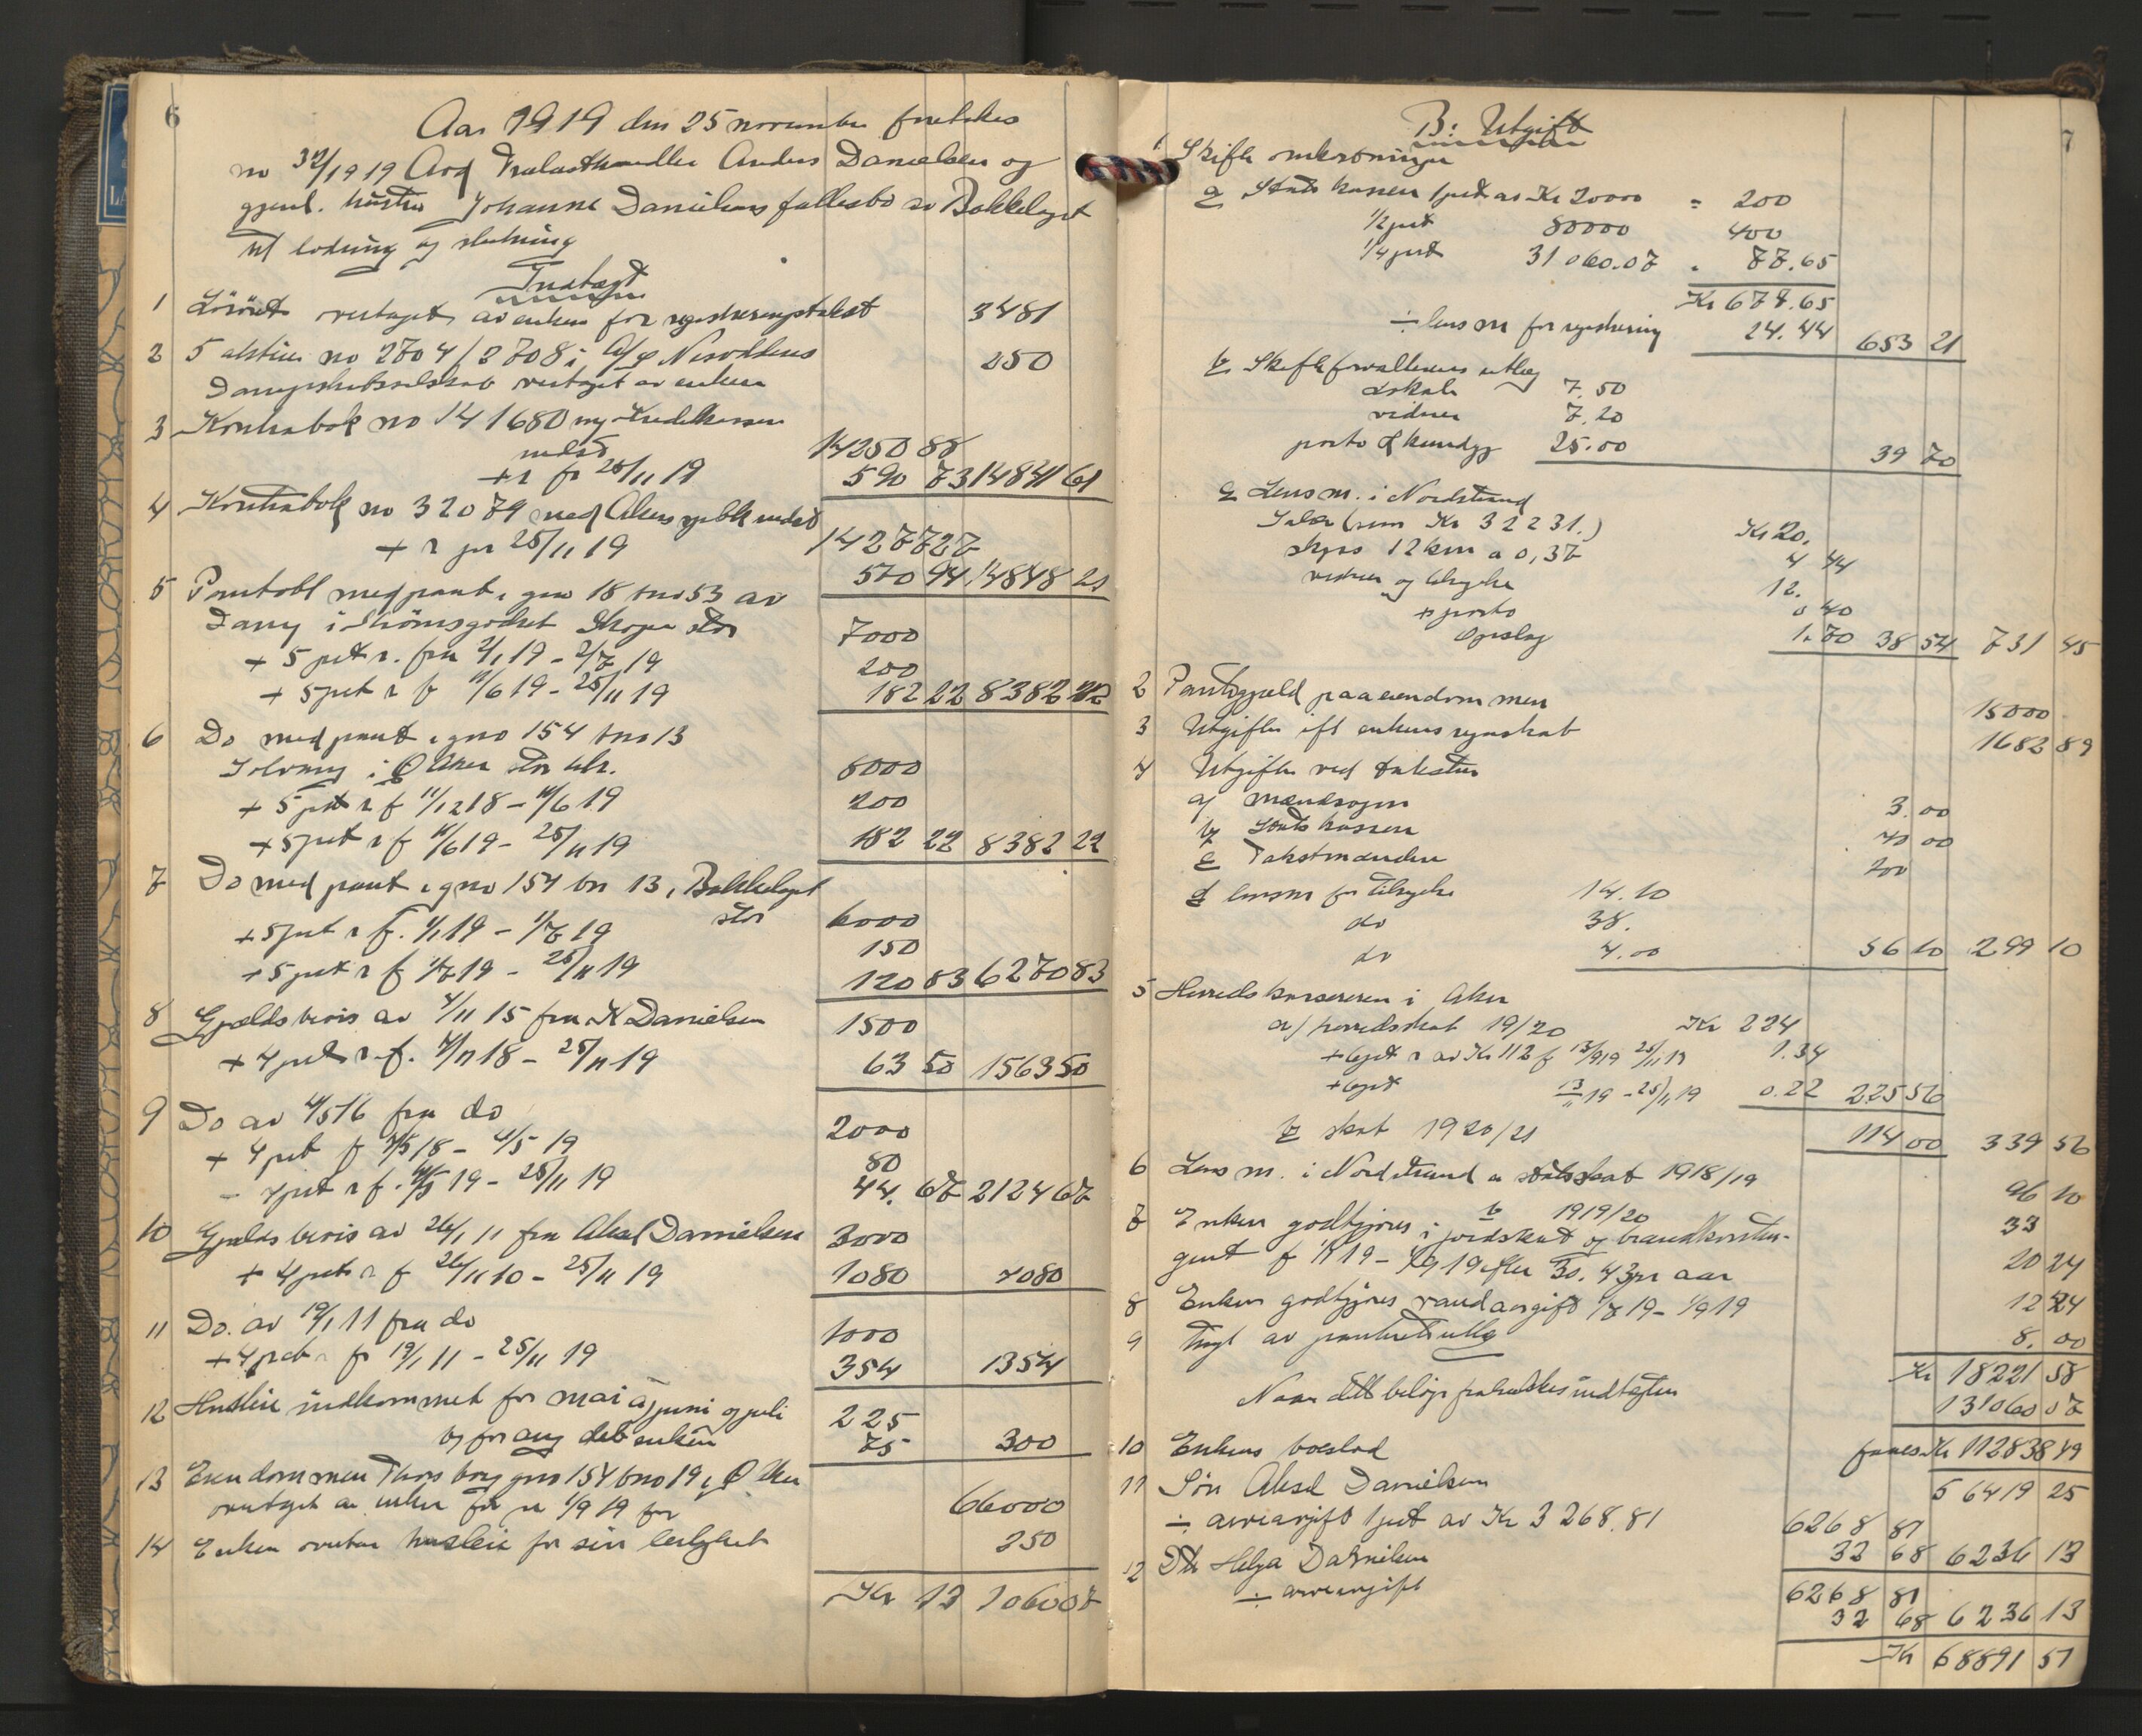 6
Aar 1919 den 25 november foretokes
no 32/1919 Avd Trælasthandler Anders Danielsen og
gjenl. hustru Johanne Danielsens fællesbo av Bækkelaget
til lodning og slutning
Indtægt
1 Lösöret overtaget av enken for registreringstakst 3481
2 5 aktier no 2704/2708 i A/S Nesoddens 250
Dampskibsselskab overtaget av enken
3 Kontrabok no 141680 my Kreditkassen
indest 14250 88
+ r fr 25/11 19 590 73 14841 61
4 Kontrabok no 32079 med Akers spbk indest 14277 27
+ r pr 25/11 19 570 94 14848 21
5 Pantobl med pant i gno 18 bno 53 av
Dany i Strömsgodset Skoger stor 7000
+ 5 pct r. fra 2/1 19 - 2/7 19 200
+ 5 pct r f 11/6 19 - 25/11 19 182 22 8382 22
6 Do med pant i gno 154 bno 13
Solvang i Ø Aker stor kr. 8000
+ 5 pct r f 11/12 18 - 11/6 19 200
+ 5 pct r f 11/6 19 - 25/11 19 182 22 8382 22
7 Do med pant i gno 154 bn 13, Bækkelaget
stor 6000
+ 5 pct r f. 1/1 19 - 1/7 19 150
+ 5 pct r f 1/7 19 - 25/11 19 120 83 6270 83
8 Gjældsbevis av 4/11 15 fra K Danielsen 1500
+ 4 pct r. f. 4/11 18 - 25/11 19 63 50 1563 50
9 Do av 4/5 16 fra do 2000
+ 4 pct f 4/5 18 - 4/5 19 80
- 4 pct r f. 4/5 19 - 25/11 19 44. 67 2124 67
10 Gjældsbevis av 26/1 11 fra Aksel Danielsen 3000
+ 4 pct r f 26/11 10 - 25/11 19 1080 4080
11 Do. av 19/1 11 fra do 1000
+ 4 pct r fr 19/1 11 - 25/11 19 354 1354
12 Husleie indkommet for mai a juni og juli 225
og for aug deb enken 75 300
13 Eiendommen Thorsborg gno 154 bno 19 i Ø. Aker
overtaget av enken for pr 1/9 19 for 66000
14 Enken overtar husleie for sin leilighet 250
Kr 131060 07
7
B: Utgift
1 Skifte omkostninger
a Statskassen 1 pct av Kr 20000 = 200
1/2 pct 80000 400
1/4 pct 31060.07 " 77.65
Kr 677.65
÷ lensm for registrering 24.44 653 21
b Skifteforvalterens utlæg
7.50
vidner 7.20
porto & kundgj 25.00 39 70
c Lensm. i Nordstrand
Salær (sum Kr 32231.) Kr 20.
skyss 12 km a 0,37 4 44
vidner og tilsigelse 12.
+ porto 0 40
Opslag 1.70 38 54 731 45
2 Pantegjæld paa eiendommen 15000
3 Utgifter ifl enkens regnskab 1682 89
4 Utgifter ved taksten
a/ mændsopn 3.00
b Statskassen 40 00
c Takstmændene 200
d lensm for tilsigelse 14.10
do 38.
do 4.00 56 10 299 10
5 Herredskassereren i Aker
a/ herredsskat 19/20 Kr 224
+ 6 pct r av Kr 112 f 13/9 19 25/11 19 1.34
+ 6 pct 13/11 19 - 25/11 19 0.22 225 56
b skat 1920/21 114 00 339 56
6 Lensm. i Nordstrand a statsskat 1918/19 96 10
b 1919/20 33
7 Enken godtgjøres i jordskat og brandkontin-
gent f 1/1 19 - 1/9 19 efter 30.43 pr aar 20 24
8 Enken godtgjøres vandavgift 1/7 19 - 1/9 19 12 24
9 Tingl av panteretutlæg 8.00
Kr 18221 58
Naar dette beløp fratrækkes indtægten 131060 07
faaes Kr 112838 49
10 Enkens boeslod 56419 25
11 Søn Aksel Danielsen 6268 81
÷ arveavgift 1 pct av Kr 3268.81 32 68 6236 13
12 Dtr Helga Danielsen 6268 81
÷ arveavgift 32 68 6236 13
Kr 68891 51